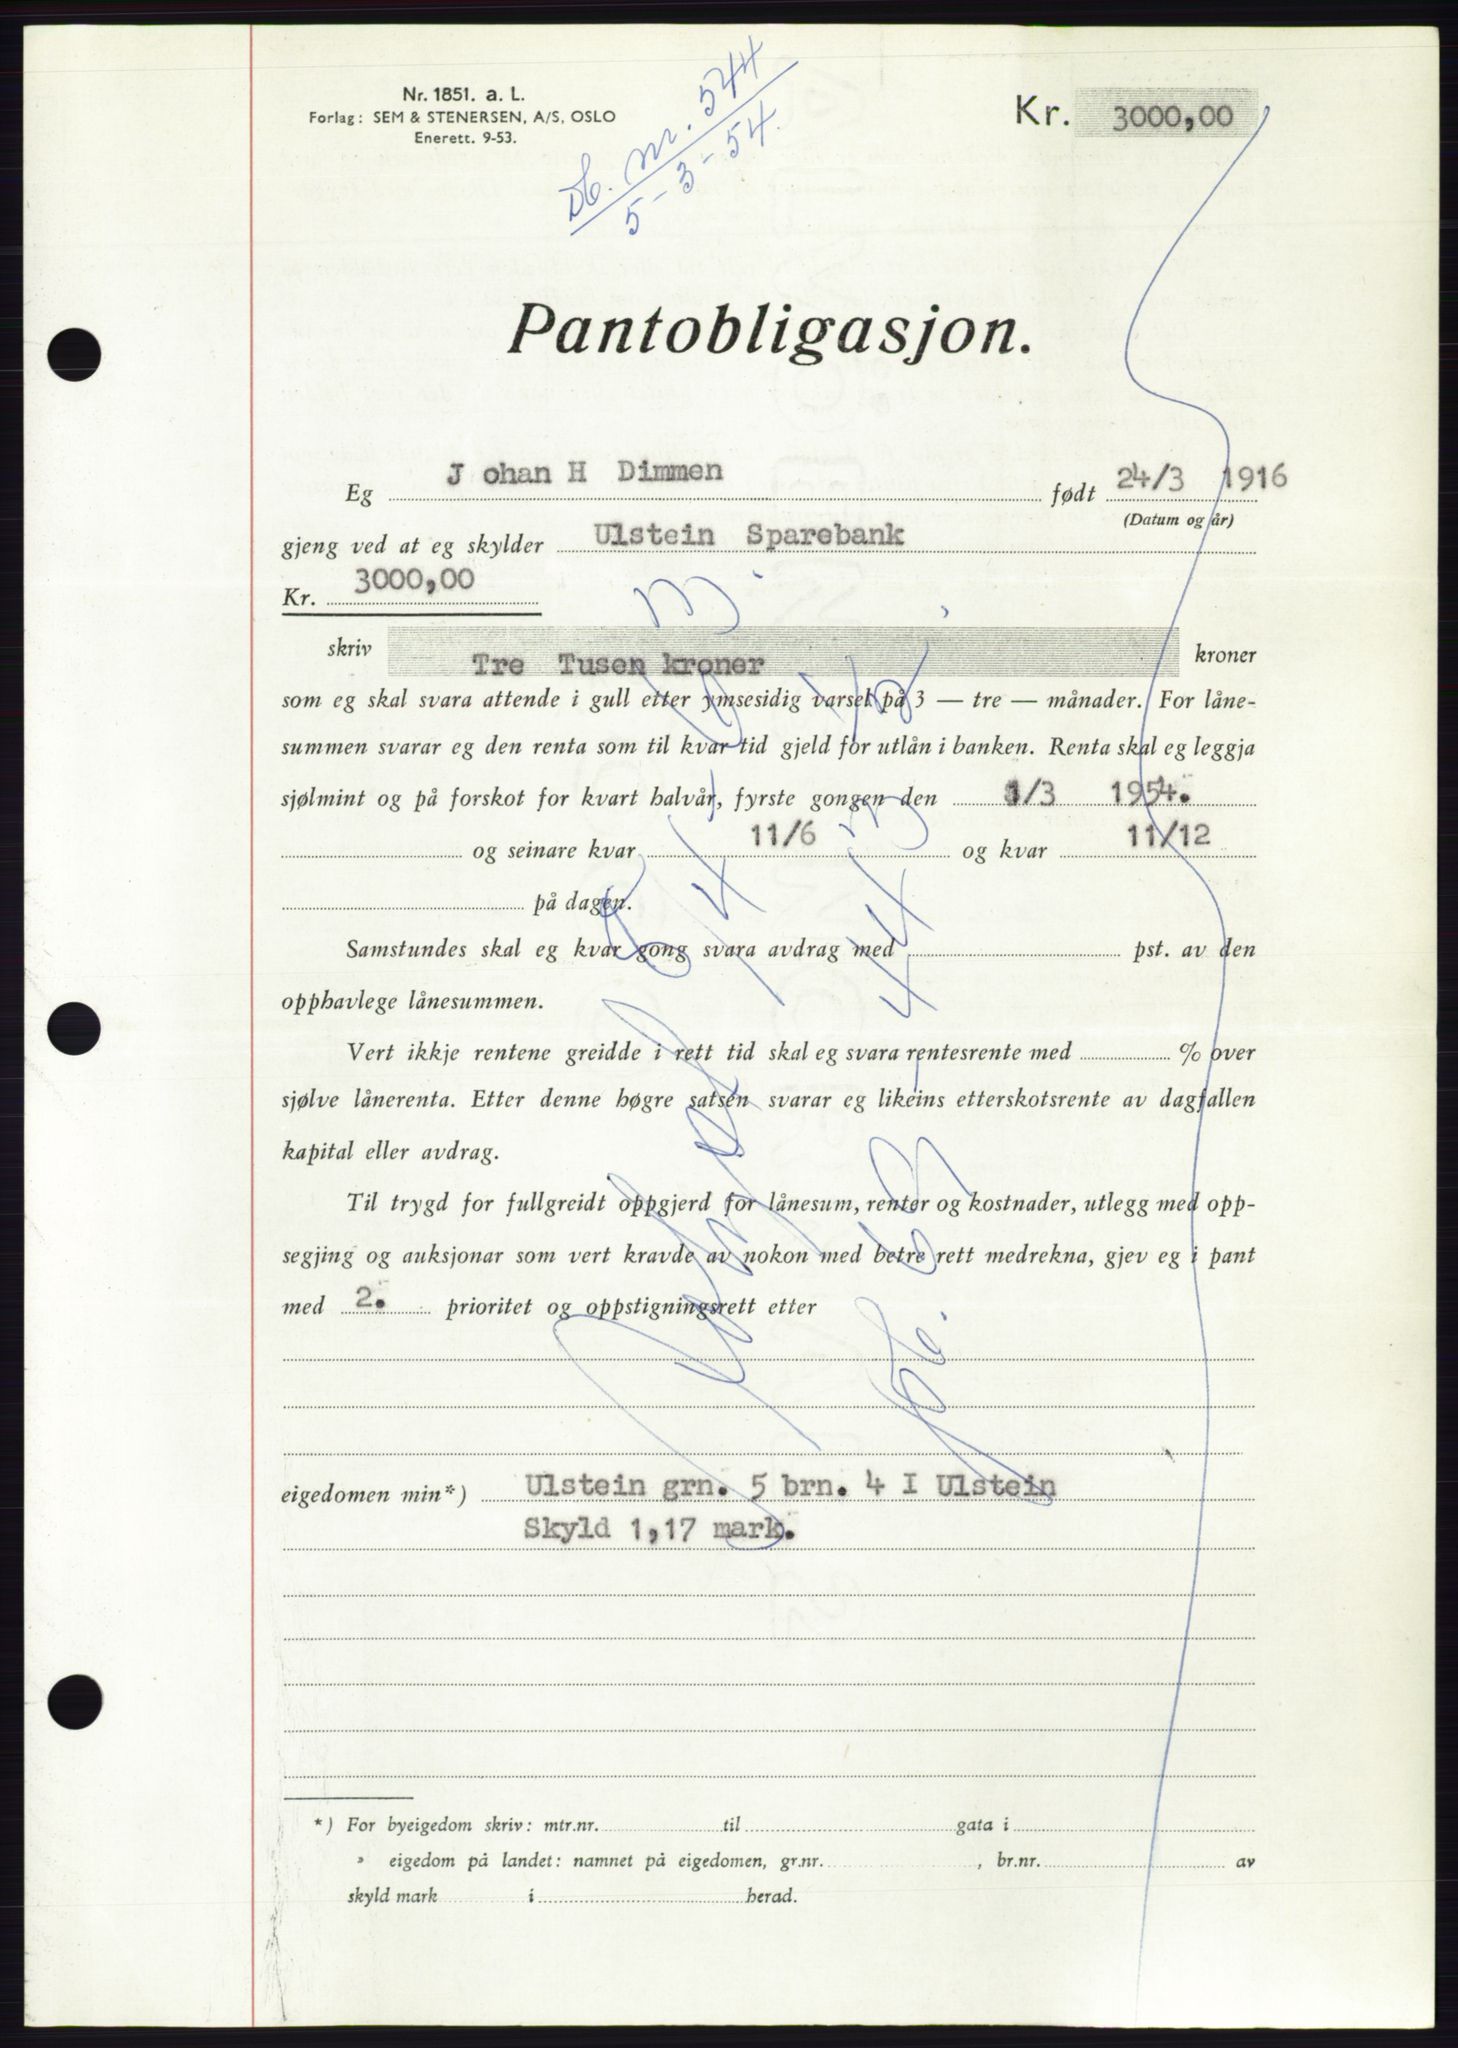 Nr. 1851. a. L.
Forlag: SEM & STENERSEN, A/S, OSLO
Enerett. 9-53.
Db. nr. 544
5-3-54.
Kr. 3000,00
Pantobligasjon.
Eg J ohan H Dimmen født 24/3 1916
(Datum og år)
gjeng ved at eg skylder Ulstein Sparebank
Kr. 3000,00
skriv Tre Tusen kroner kroner
som eg skal svara attende i gull etter ymsesidig varsel på 3 — tre — månader. For låne-
summen svarar eg den renta som til kvar tid gjeld for utlån i banken. Renta skal eg leggja
sjølmint og på forskot for kvart halvår, fyrste gongen den 1/3 1954.
og seinare kvar 11/6 og kvar 11/12
på dagen.
Samstundes skal eg kvar gong svara avdrag med pst. av den
opphavlege lånesummen.
Vert ikkje rentene greidde i rett tid skal eg svara rentesrente med % over
sjølve lånerenta. Etter denne høgre satsen svarar eg likeins etterskotsrente av dagfallen
kapital eller avdrag.
Til trygd for fullgreidt oppgjerd for lånesum, renter og kostnader, utlegg med opp-
segjing og auksjonar som vert kravde av nokon med betre rett medrekna, gjev eg i pant
med 2. prioritet og oppstigningsrett etter
eigedomen min*) Ulstein grn. 5 brn. 4 I Ulstein
Skyld 1,17 mark.
*) For byeigedom skriv: mtr.nr. til gata i
» eigedom på landet: namnet på eigedomen, gr.nr. , br.nr. av
skyld mark i herad.